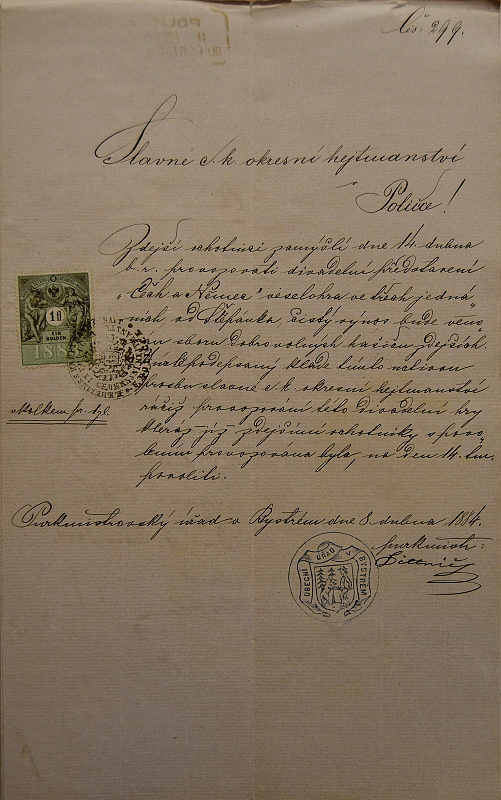 Čís: 299.
Slavné c. k. okresní hejtmanství
Polička!
Zdejší ochotníci zamýšlí dne 14. dubna
b. r. provozovati divadelní představení
„Čech a Němec“ veselohra ve třech jedná-
ních, od Štěpánka, čistý výnos bude věno-
ván sboru dobrovolných hasičů zdejších.
Nížepodepsaný klade tímto
prosbu slavné c. k. okresní hejtmanství
račiž provozování této divadelní hry
kteráž již zdejšími ochotníky s povo-
lením provozována byla, na den 14. t. m.
povoliti.
1 fl
EIN
GULDEN.
188
kolkem
Purkmistrovský úřad v Bystrém dne 8. dubna 1884.
purkmistr:
OBECNÍ ÚŘAD V BYSTRÉM